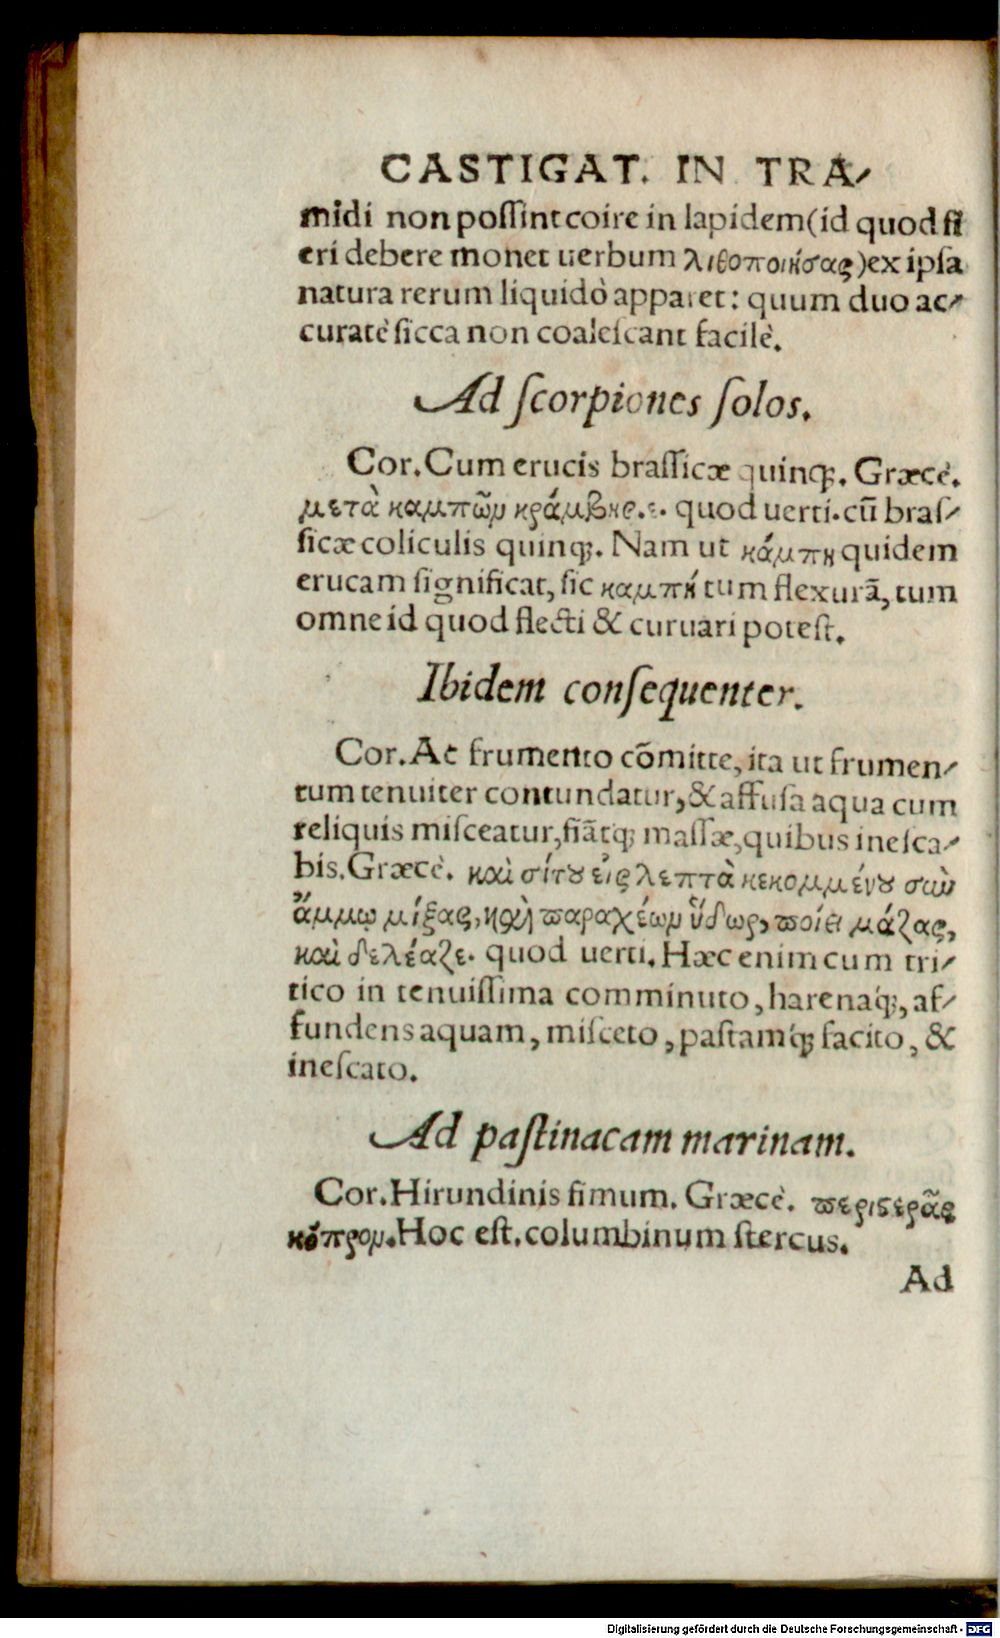 CASTIGAT. IN TRA-
midi non poſſint coire in lapidem (id quod fi
eri debere monet uerbum λιθοποιήσας) ex ipſa
natura rerum liquidò apparet: quum duo ac-
curatè ſicca non coaleſcant facilè.
Ad ſcorpiones ſolos.
Cor. Cum erucis braſſicæ quinq;. Græcè.
μετὰ καμπῶν κράμβης.ε. quod uerti. cū braſ-
ſicæ coliculis quinq;. Nam ut κάμπη quidem
erucam ſignificat, ſic καμπή tum flexurā, tum
omne id quod flecti & curuari poteſt.
Ibidem conſequenter.
Cor. Ac frumento cōmitte, ita ut frumen-
tum tenuiter contundatur, & affuſa aqua cum
reliquis miſceatur, fiātq; maſſæ, quibus ineſca-
bis. Græcè. καὶ σίτου εἰς λεπτὰ κεκομμένου σὺν
ἄμμῳ μίξας, καὶ παραχέων ὕδωρ, ποίει μάζας,
καὶ δελέαζε. quod uerti. Hæc enim cum tri-
tico in tenuiſſima comminuto, harenaq́;, af-
fundens aquam, miſceto, paſtamq́; facito, &
ineſcato.
Ad paſtinacam marinam.
Cor. Hirundinis fimum. Græcè. περιστερᾶς
κόπρον. Hoc eſt. columbinum ſtercus.
Ad
Digitalisierung gefördert durch die Deutsche Forschungsgemeinschaft - DFG